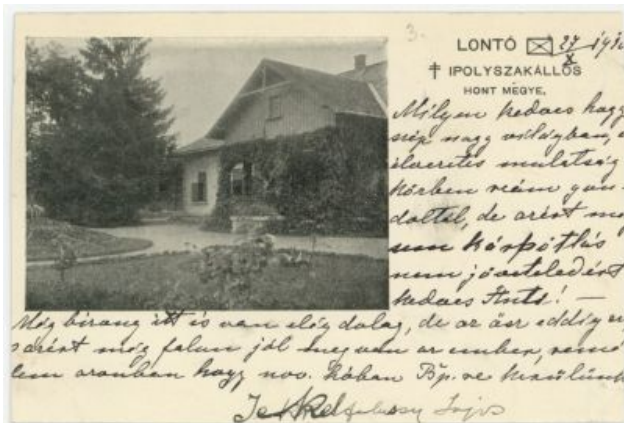 3.
LONTÓ 27/X 191
† IPOLYSZAKÁLLOS
HONT MEGYE.
Milyen kedves hogy
szép nagy világban,
élvezetes mulatság
körben reám gon-
doltál, de azért
nem kárpótlás
nem jöveteledért
kedves Anti! —
Még birang itt is van elég dolog, de az ősz eddig
s azért még falun jól meg van az ember, remé
lem azonban hogy nov. hóban Bp.re kerülünk
Lajos